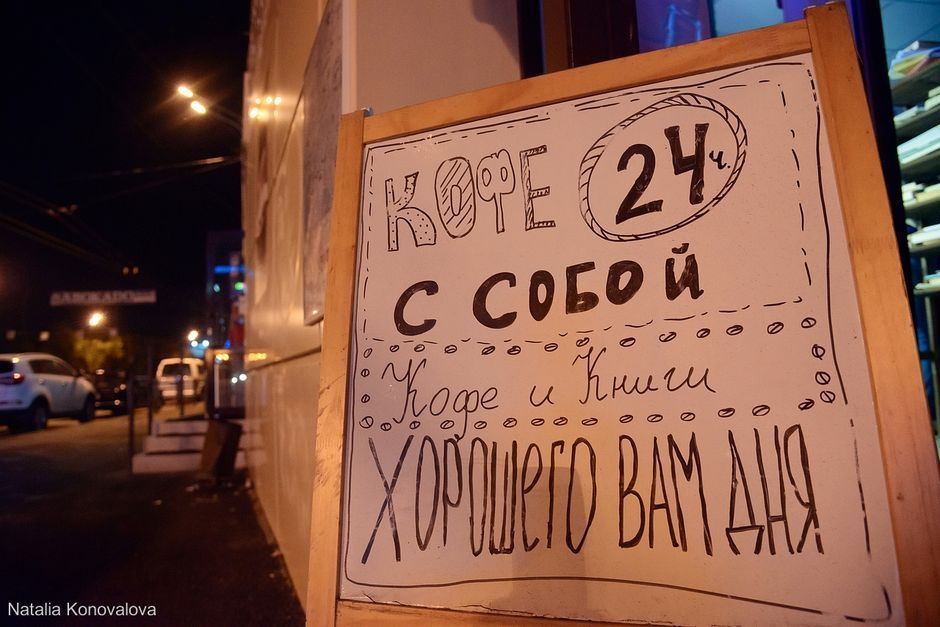 КОФЕ 24 ч.
С СОБОЙ
Кофе и Книги
ХОРОШЕГО ВАМ ДНЯ
Natalia Konovalova